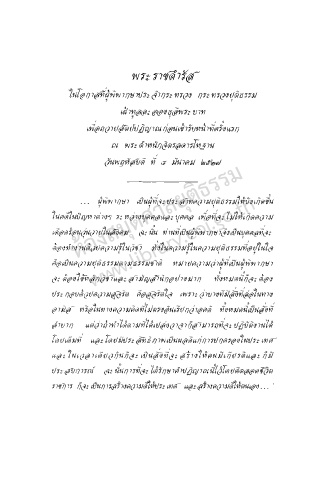 พระราชดำรัส
ในโอกาสที่ผู้พิพากษาประจำกระทรวง กระทรวงยุติธรรม
เฝ้าทูลละอองธุลีพระบาท
เพื่อถวายสัตย์ปฏิญาณก่อนเข้ารับหน้าที่ครั้งแรก
ณ พระตำหนักจิตรลดารโหฐาน
วันพฤหัสบดี ที่ ๘ มีนาคม ๒๕๒๗
... ผู้พิพากษา เป็นผู้ที่จะประสาทความยุติธรรมให้บังเกิดขึ้น
ในคดีในปัญหาต่างๆ ระหว่างบุคคลและบุคคล เพื่อที่จะไม่ให้เกิดความ
เดือดร้อนวุ่นวายในสังคม ฉะนั้น ท่านที่เป็นผู้พิพากษาจึงเป็นบุคคลที่จะ
ต้องทำงานด้วยความรู้ในวิชา ทั้งในความรู้ในความยุติธรรมที่อยู่ในใจ
คือเป็นความยุติธรรมตามธรรมชาติ หมายความว่าผู้ที่เป็นผู้พิพากษา
จะต้องใช้หลักวิชาและสามัญสำนึกอย่างมาก ทั้งหมดนี้ก็จะต้อง
ประกอบด้วยความสุจริต คือสุจริตใจ เพราะว่าบางทีมีสิ่งที่ล่อในทาง
อามิส หรือในทางความคิดที่ไม่ตรงอันเรียกว่าอคติ ทั้งหมดนี้เป็นสิ่งที่
ลำบาก แต่ว่าถ้าทำได้ตามที่ได้เปล่งวาจาก็สามารถที่จะปฏิบัติงานได้
โดยเต็มที่ และโดยมีประสิทธิภาพเป็นผลดีแก่การปกครองในประเทศ
และในเวลาเดียวกันก็จะเป็นสิ่งที่จะสร้างให้ตนมีเกียรติและก็มี
ประสบการณ์ ฉะนั้นการที่จะได้รักษาคำปฏิญาณนี้ไว้โดยตลอดชีวิต
ราชการ ก็จะเป็นการสร้างความดีให้ประเทศ และสร้างความดีให้ตนเอง...